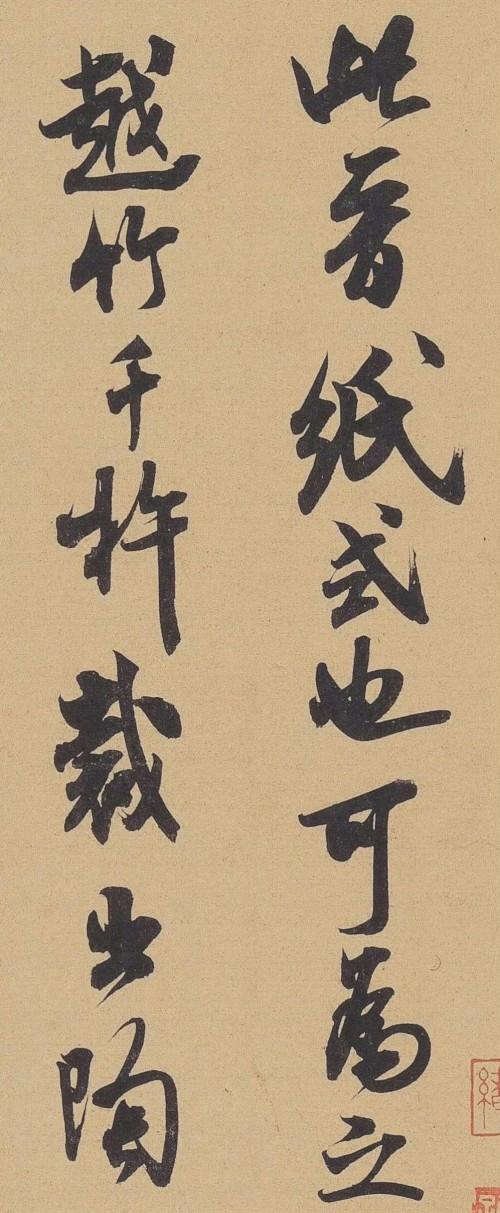 此晉紙式也可為之
越竹千杵裁出陶